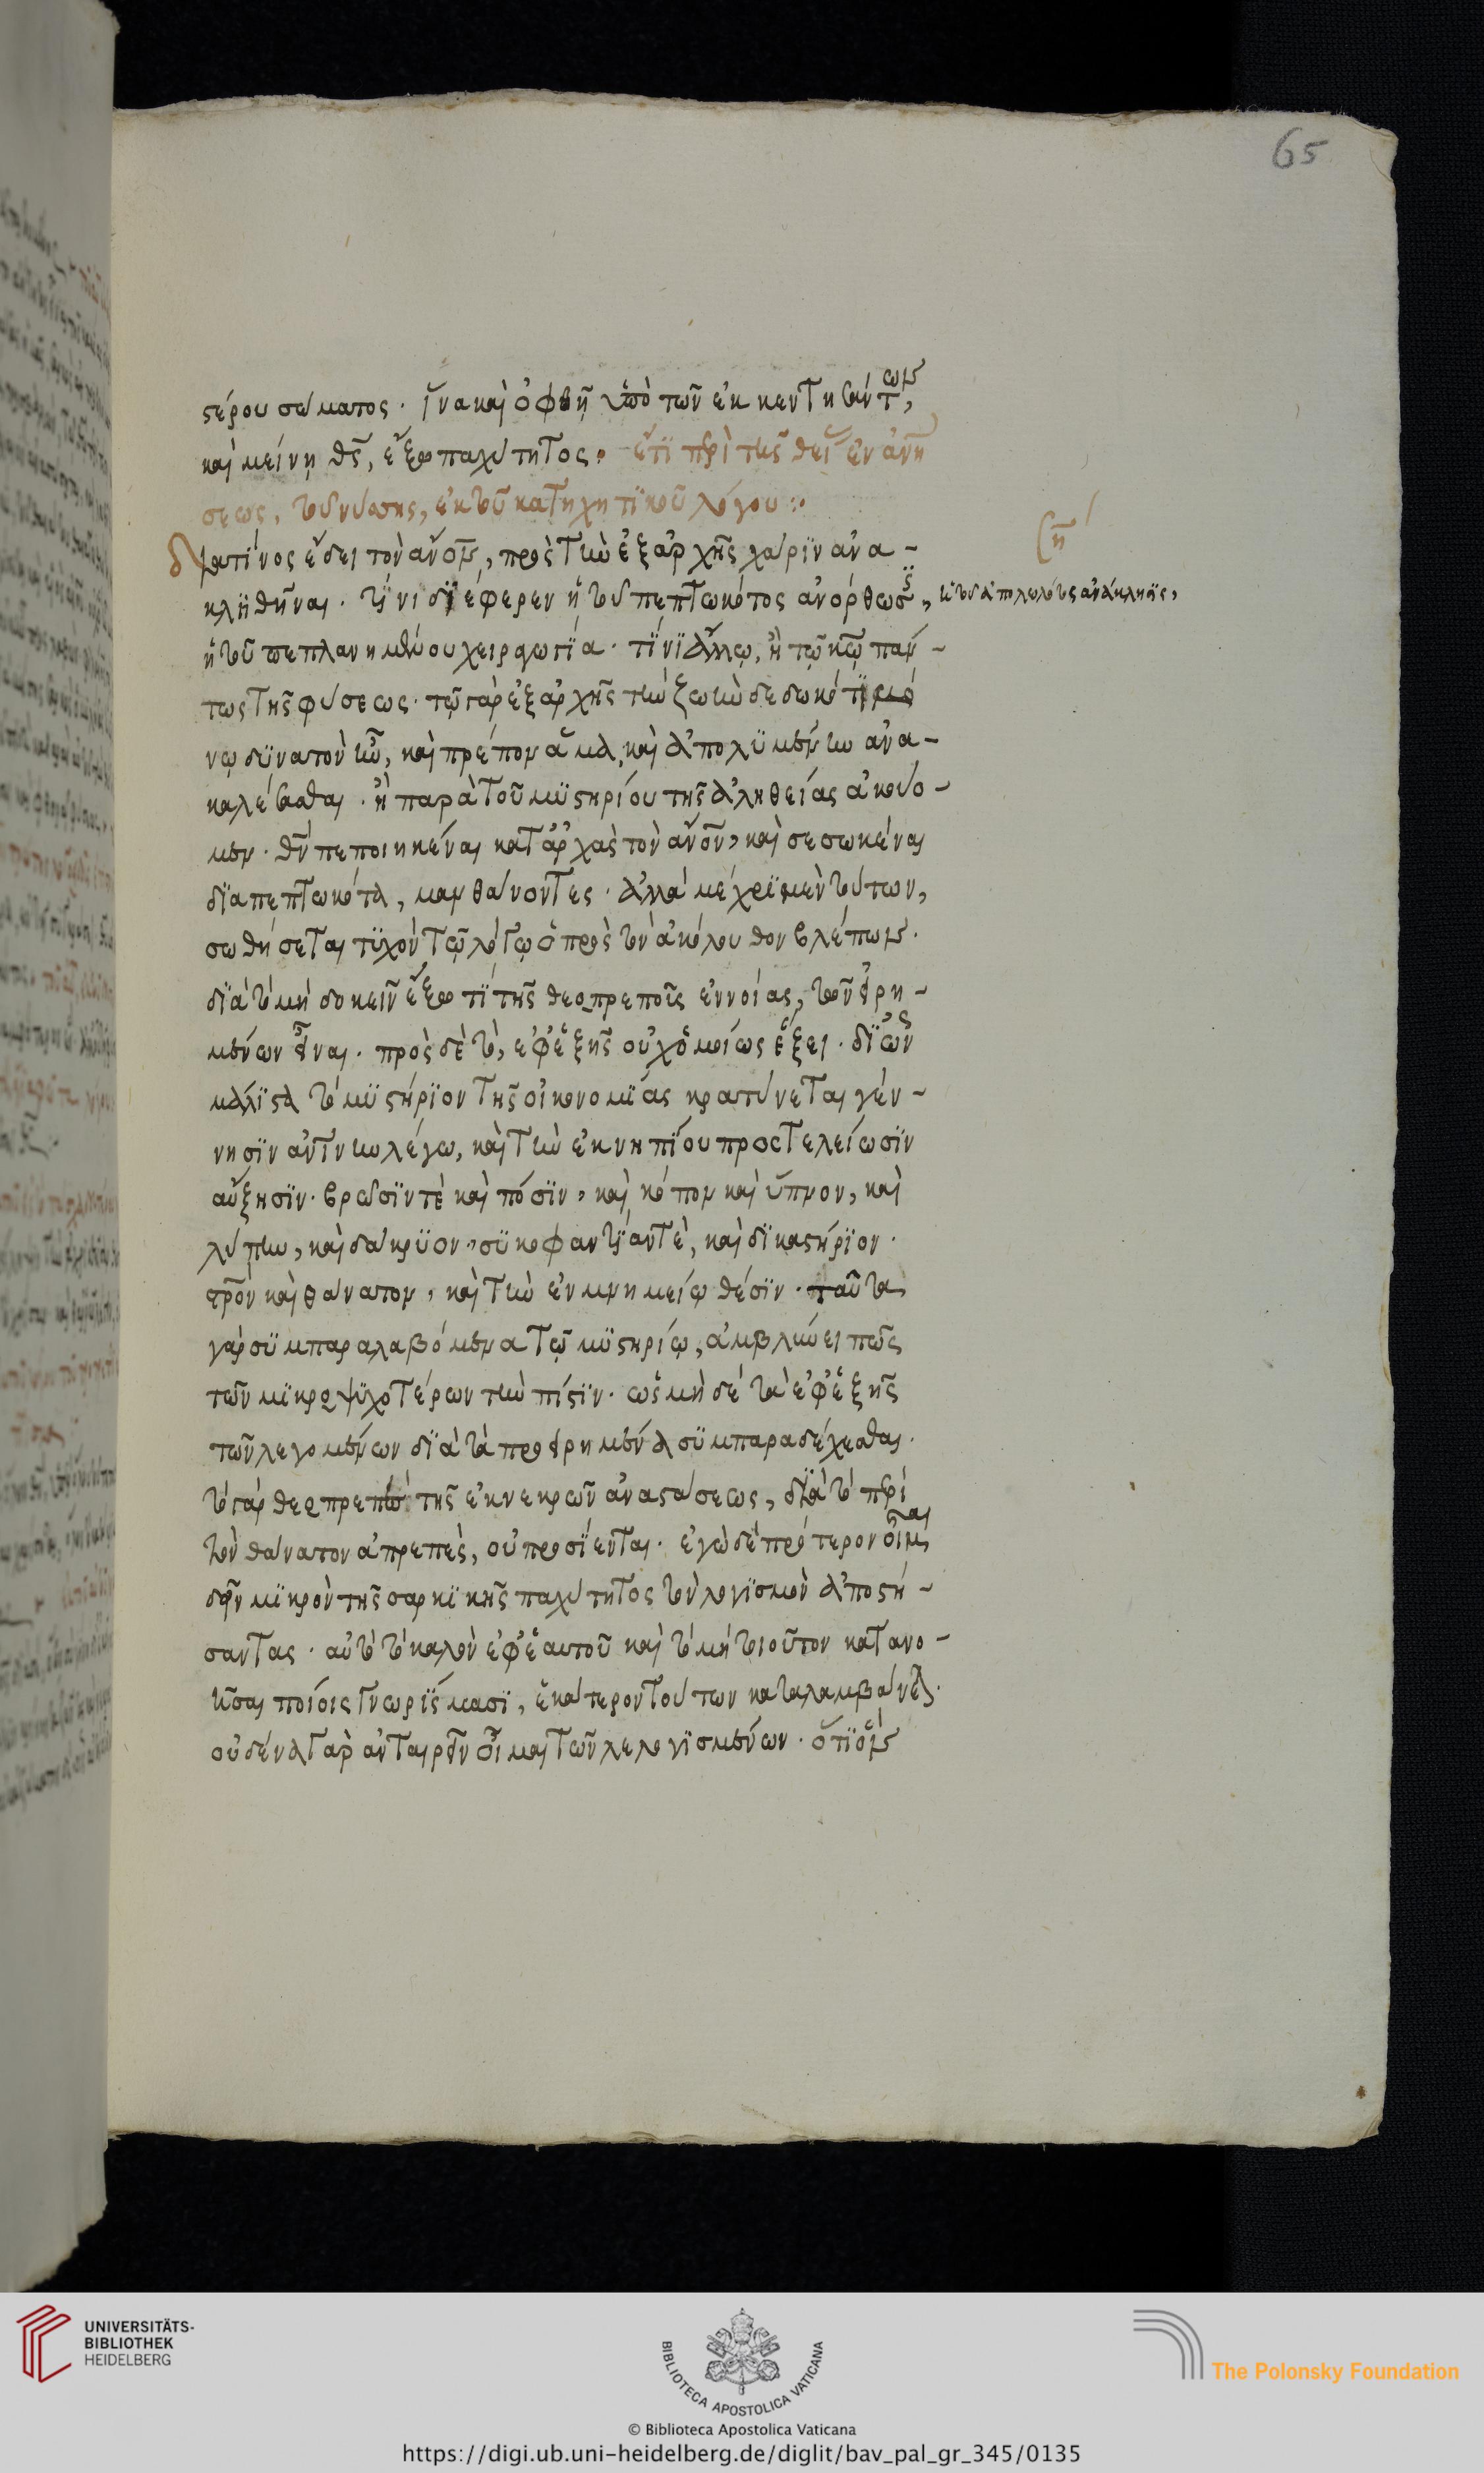 65
στέρου σώματος· ἵνα καὶ ὀφθῆ ὑπὸ τῶν ἐκκεντησάντων,
καὶ μείνῃ θς, ἔξω παχύτητος· ἔτι περὶ τῆς θεί ἐν ανη
σεως, τοῦ νύσης, ἐκ τοῦ κατηχητικοῦ λόγου :·
διατίνος ἔδει τὸν ἄνον, πρὸς τὴν ἐξαρχῆς χάριν ἀνα-
κληθῆναι. τίνι διέφερεν ἡ τοῦ πεπτωκότος ἀνόρθωσις,
ἡ τοῦ ἀπολωλότος ἀνάκλησις,
ἡ τοῦ πεπλανημένου χειραγωγία· τίνι ἄλλῳ, ἢ τῷ κῷ παν-
τως τῆς φύσεως· τῷ γὰρ ἐξαρχῆς τὴν ζωὴν δεδωκότι μό
νῳ δυνατὸν ἦν, καὶ πρέπον ἅμα καὶ ἀπολυμένην ἀνα-
καλέσασθαι. ὃ παρὰ τοῦ μυστηρίου τῆς ἀληθείας ἀκούο-
μεν. θν πεποιηκέναι κατ' ἀρχὰς τὸν ἄνον, καὶ σεσωκέναι
διαπεπτωκότα, μανθάνοντες. ἀλλὰ μέχρι μὲν τούτων,
σωθήσεται τυχὸν τῷ λόγῳ ὁ πρὸς τὸν ἀκόλουθον βλέπων.
διὰ τὸ μὴ δοκεῖν ἔξω τι τῆς θεοπρεποῦς ἐννοίας, τῶν εἰρη-
μένων εἶναι. πρὸς δὲ τὸ, ἐφεξῆς οὐχ ὁμοίως ἕξει. δι' ὧν
μάλιστα τὸ μυστήριον τῆς οἰκονομίας κρατύνεται γέν-
νησιν ἀνίνην λέγω, καὶ τὴν ἐκ νηπίου πρὸς τελείωσιν
αὔξησιν. βρῶσίν τε καὶ πόσιν, καὶ κόπον καὶ ὕπνον, καὶ
λύπην, καὶ δάκρυον, συκοφαντίαν τὲ, καὶ δικαστήριον.
στρον καὶ θάνατον, καὶ τὴν ἐν μνημείῳ θέσιν. ταῦτα
γὰρ συμπαραλαβόμενα τῷ μυστηρίῳ, ἀμβλύνει πῶς
τῶν μικροψυχοτέρων τὴν πίστιν. ὡς μὴ δὲ τὰ ἐφεξῆς
τῶν λεγομένων διὰ τὰ προειρημένα συμπαραδέχεσθαι.
τὸ γὰρ θεοπρεπὲς τῆς ἐκ νεκρῶν ἀναστάσεως, διὰ τὸ περὶ
τὸν θάνατον ἀπρεπὲς, οὐ προσίενται. ἐγὼ δὲ πρότερον οἶμαι
δεῖν μικρὸν τῆς σαρκικῆς παχύτητος τὸν λογισμὸν ἀποστή-
σαντας. αὐτὸ τὸ καλὸν ἐφ' ἑαυτοῦ καὶ τὸ μὴ τοιοῦτον κατανο-
ῆσαι ποίοις γνωρίσμασι, ἑκάτερον τούτων καταλαμβάνεται.
οὐδένα γὰρ ἀνταιρεῖν οἶμαι τῶν λελογισμένων. ὅτι ἓν